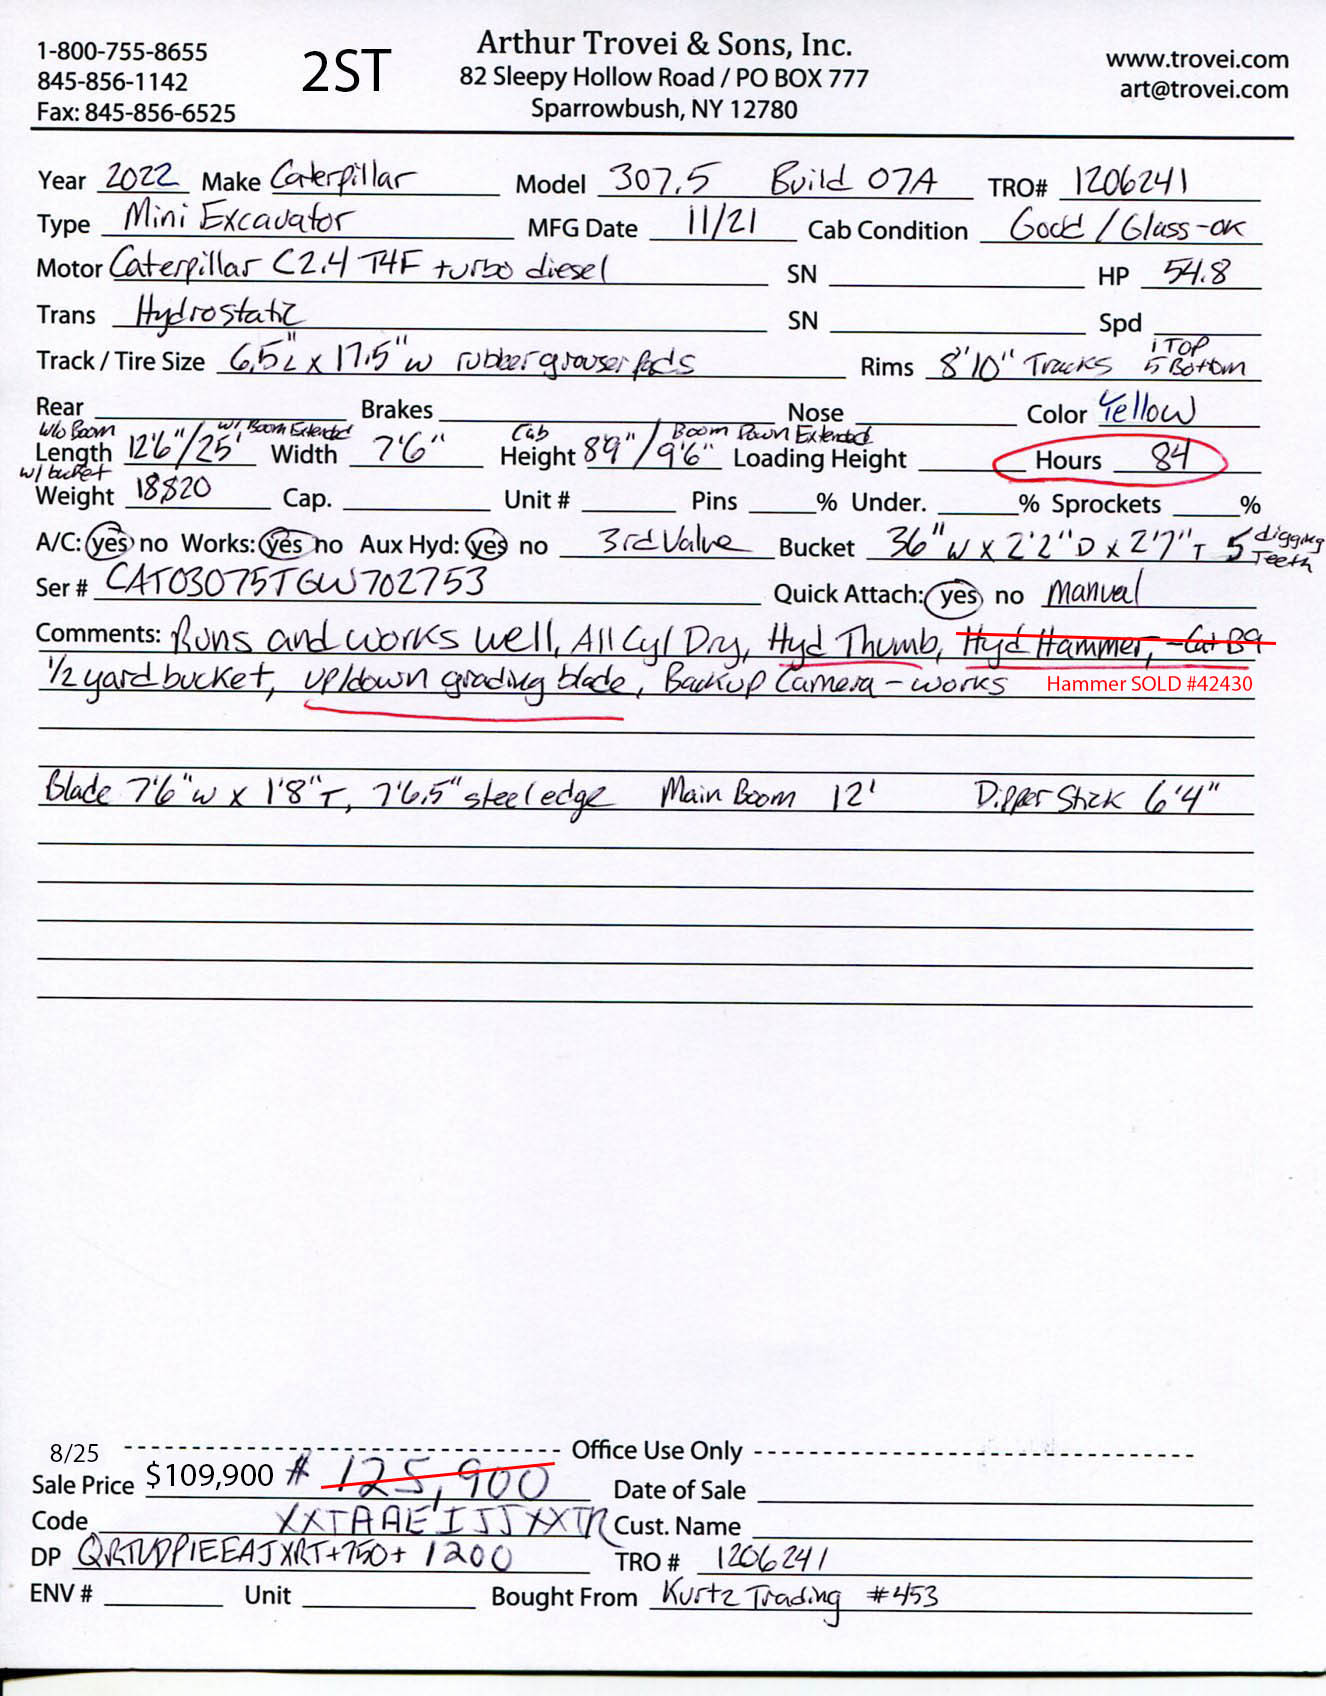 1-800-755-8655
845-856-1142
Fax: 845-856-6525
2ST
Arthur Trovei & Sons, Inc.
82 Sleepy Hollow Road / PO BOX 777
Sparrowbush, NY 12780
www.trovei.com
art@trovei.com
Year 2022 Make Caterpillar Model 307.5 Build 07A TRO# 1206241
Type Mini Excavator MFG Date 11/21 Cab Condition Good / Glass-ok
Motor Caterpillar C2.4 T4F turbo diesel SN HP 54.8
Trans Hydrostatic SN Spd
Track / Tire Size 6.5"L x 17.5"W rubber grouser pads Rims 8'10" Tracks 1 Top 5 Bottom
Rear Brakes Nose Color Yellow
w/o Boom w/ Boom Extended Cab Boom Down Extended
Length 12'6"/25' Width 7'6" Height 8'9"/9'6" Loading Height Hours 84
w/ bucket
Weight 18820 Cap. Unit # Pins % Under. % Sprockets %
A/C: yes no Works: yes no Aux Hyd: yes no 3rd Valve Bucket 36"W x 2'2"D x 2'7"T 5 digging Teeth
Ser # CAT03075TGW702753 Quick Attach: yes no Manual
Comments: Runs and works well, All Cyl Dry, Hyd Thumb, Hyd Hammer, -Cat B9
1/2 yard bucket, up/down grading blade, Backup Camera - works Hammer SOLD #42430
Blade 7'6"W x 1'8"T, 7'6.5" steel edge Main Boom 12' Dipper Stick 6'4"
8/25 Office Use Only
Sale Price $109,900 # 125,900 Date of Sale
Code XXTAAEIJJXXTR Cust. Name
DP QRTUDPIEEAJXRT+750+1200 TRO # 1206241
ENV # Unit Bought From Kurtz Trading #453